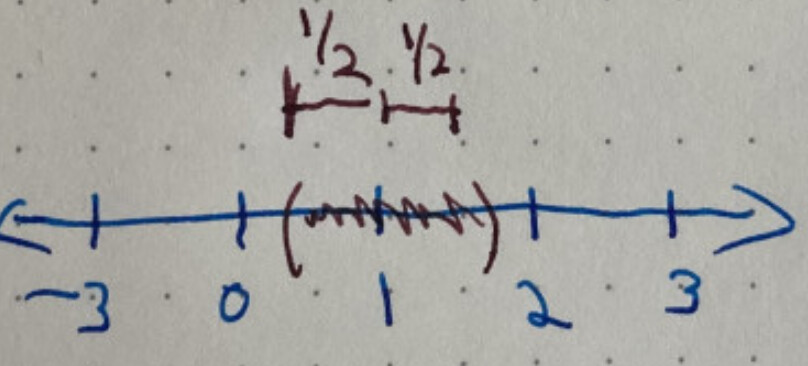 1/2 1/2
-3 0 1 2 3